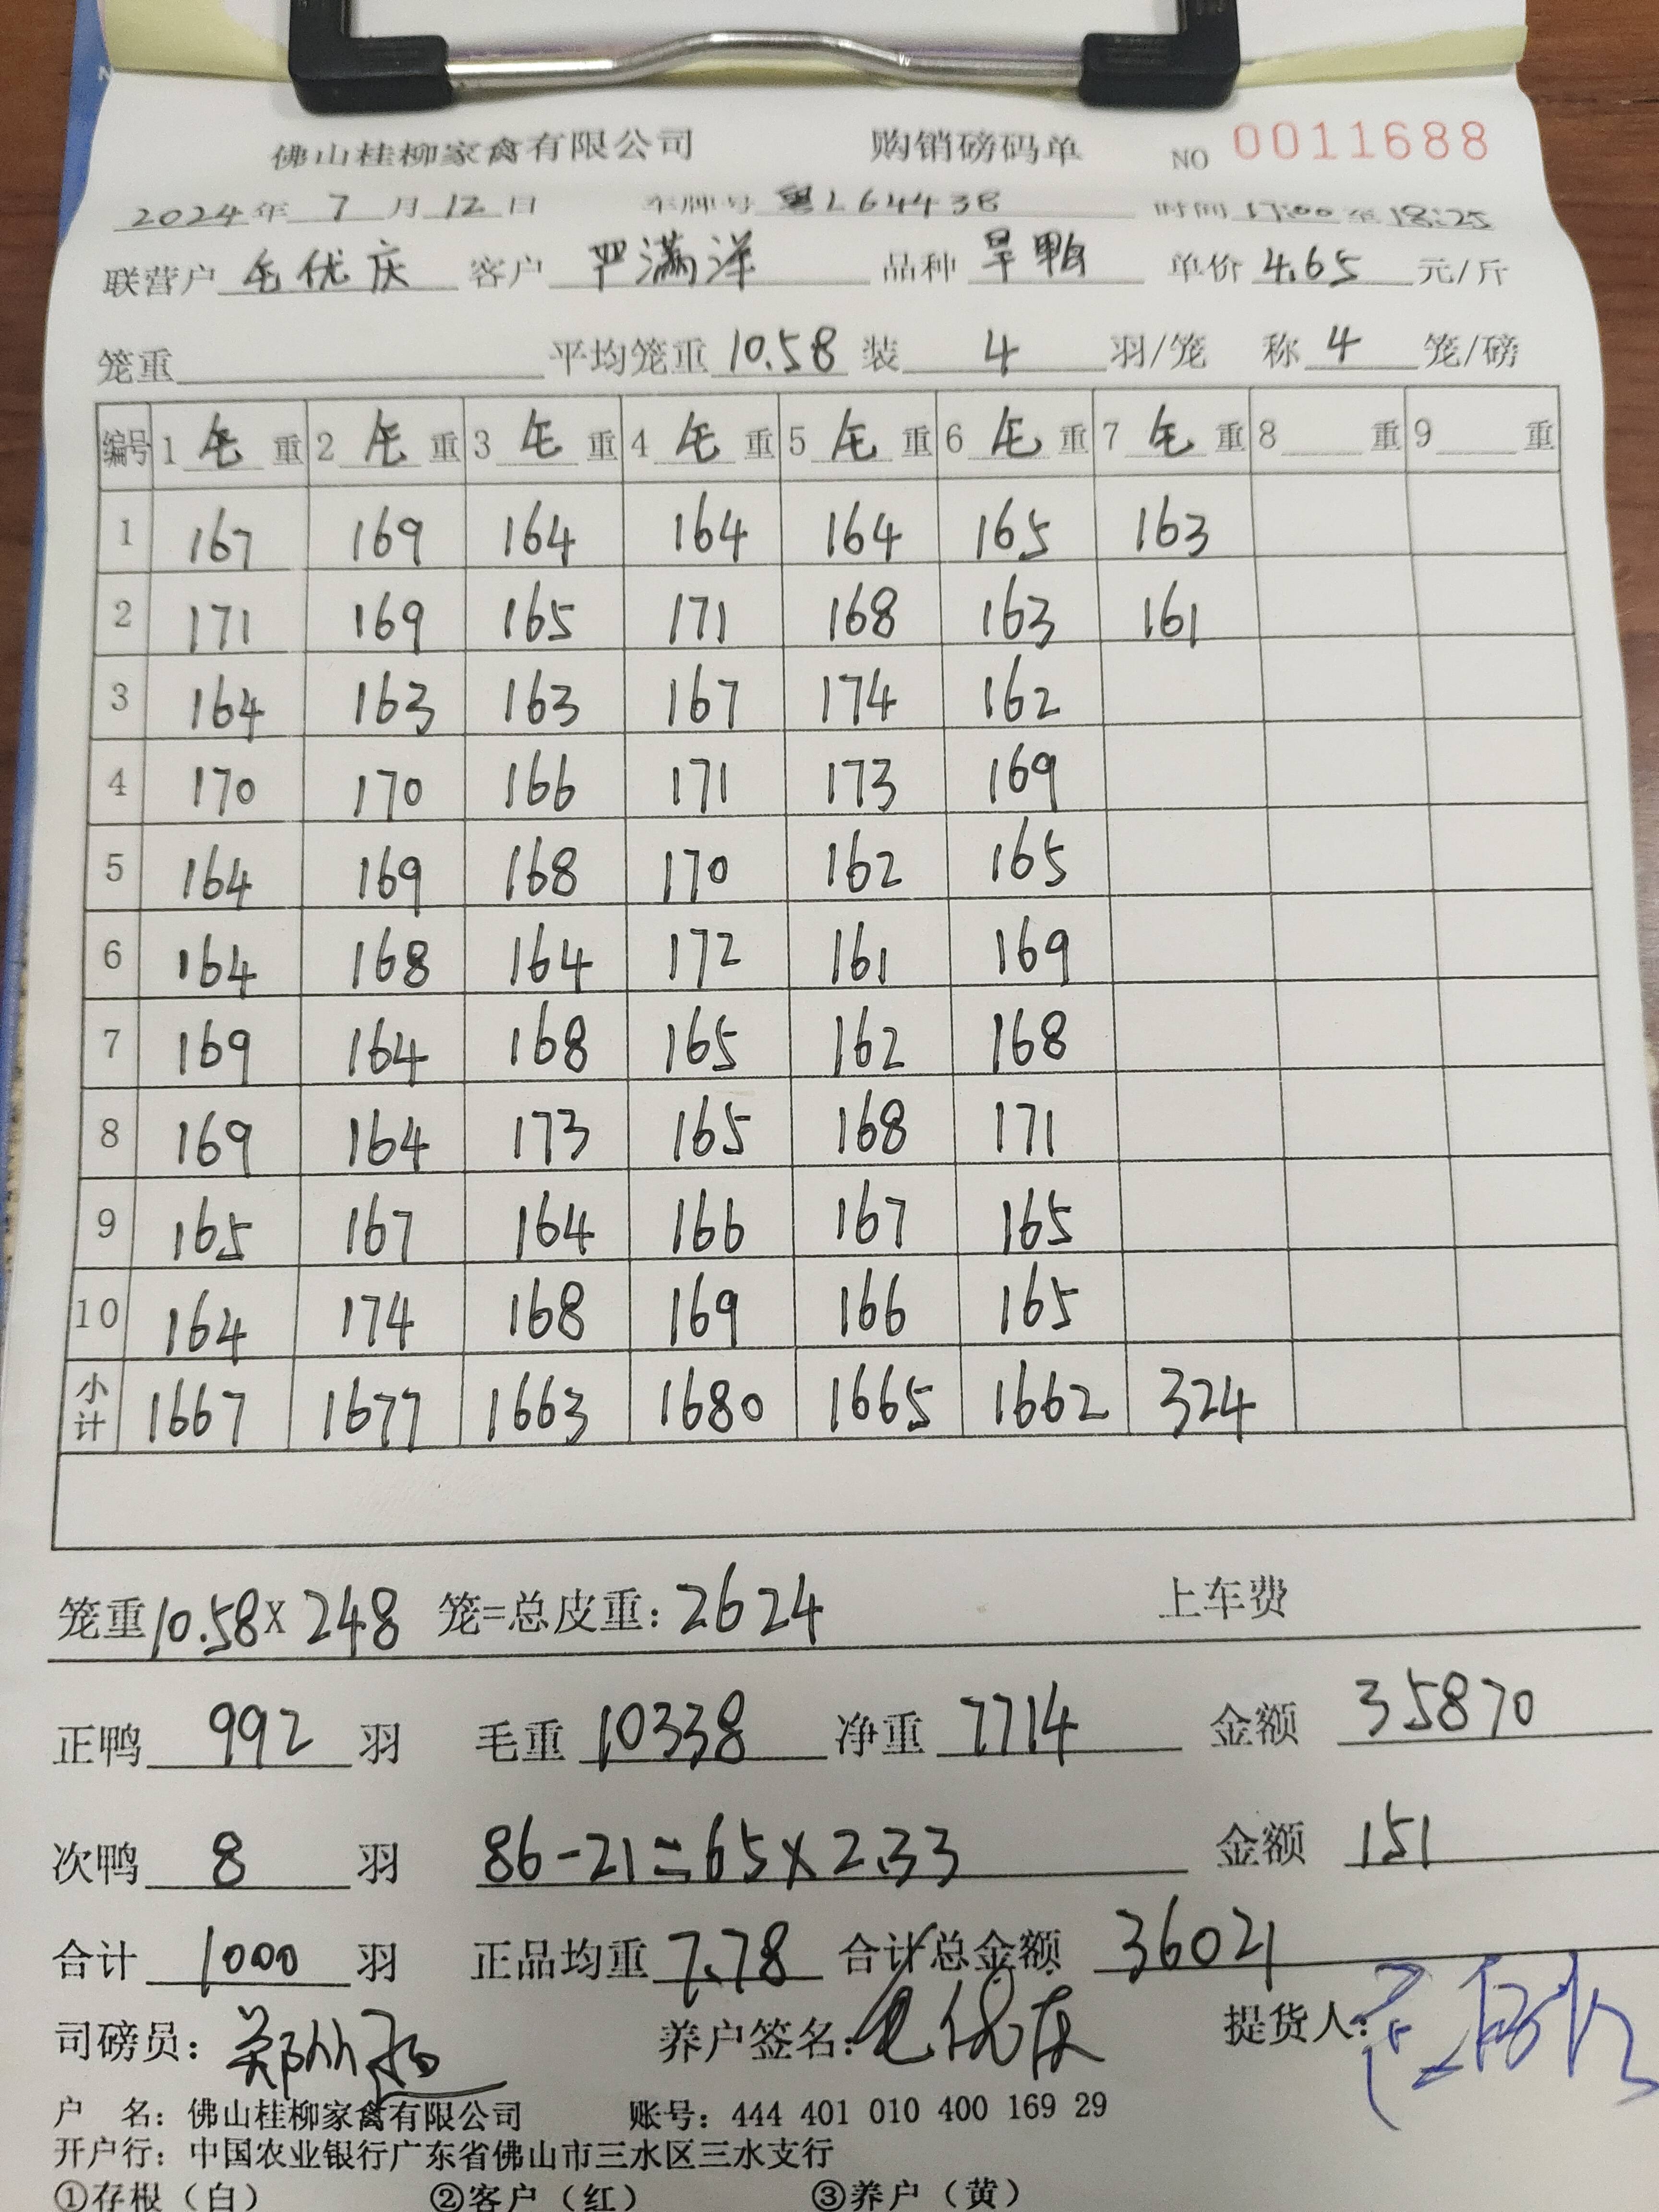 佛山桂柳家禽有限公司 购销磅码单 NO 0011688
2024年 7 月 12 日 车牌号 粤L6443B 时间 17:00 至 18:25
联营户 毛优庆 客户 严满洋 品种 旱鸭 单价 4.65 元/斤
笼重 平均笼重 10.58 装 4 羽/笼 称 4 笼/磅
编号 1 毛 重 2 毛 重 3 毛 重 4 毛 重 5 毛 重 6 毛 重 7 毛 重 8 重 9 重
1 167 169 164 164 164 165 163
2 171 169 165 171 168 163 161
3 164 163 163 167 174 162
4 170 170 166 171 173 169
5 164 169 168 170 162 165
6 164 168 164 172 161 169
7 169 164 168 165 162 168
8 169 164 173 165 168 171
9 165 167 164 166 167 165
10 164 174 168 169 166 165
小计 1667 1677 1663 1680 1665 1662 324
笼重 10.58 x 248 笼=总皮重: 2624 上车费
正鸭 992 羽 毛重 10338 净重 7714 金额 35870
次鸭 8 羽 86-21=65x2.33 金额 151
合计 1000 羽 正品均重 7.78 合计总金额 36021
司磅员: 养户签名: 毛优庆 提货人:
户 名: 佛山桂柳家禽有限公司 账号: 444 401 010 400 169 29
开户行: 中国农业银行广东省佛山市三水区三水支行
①存根（白） ②客户（红） ③养户（黄）